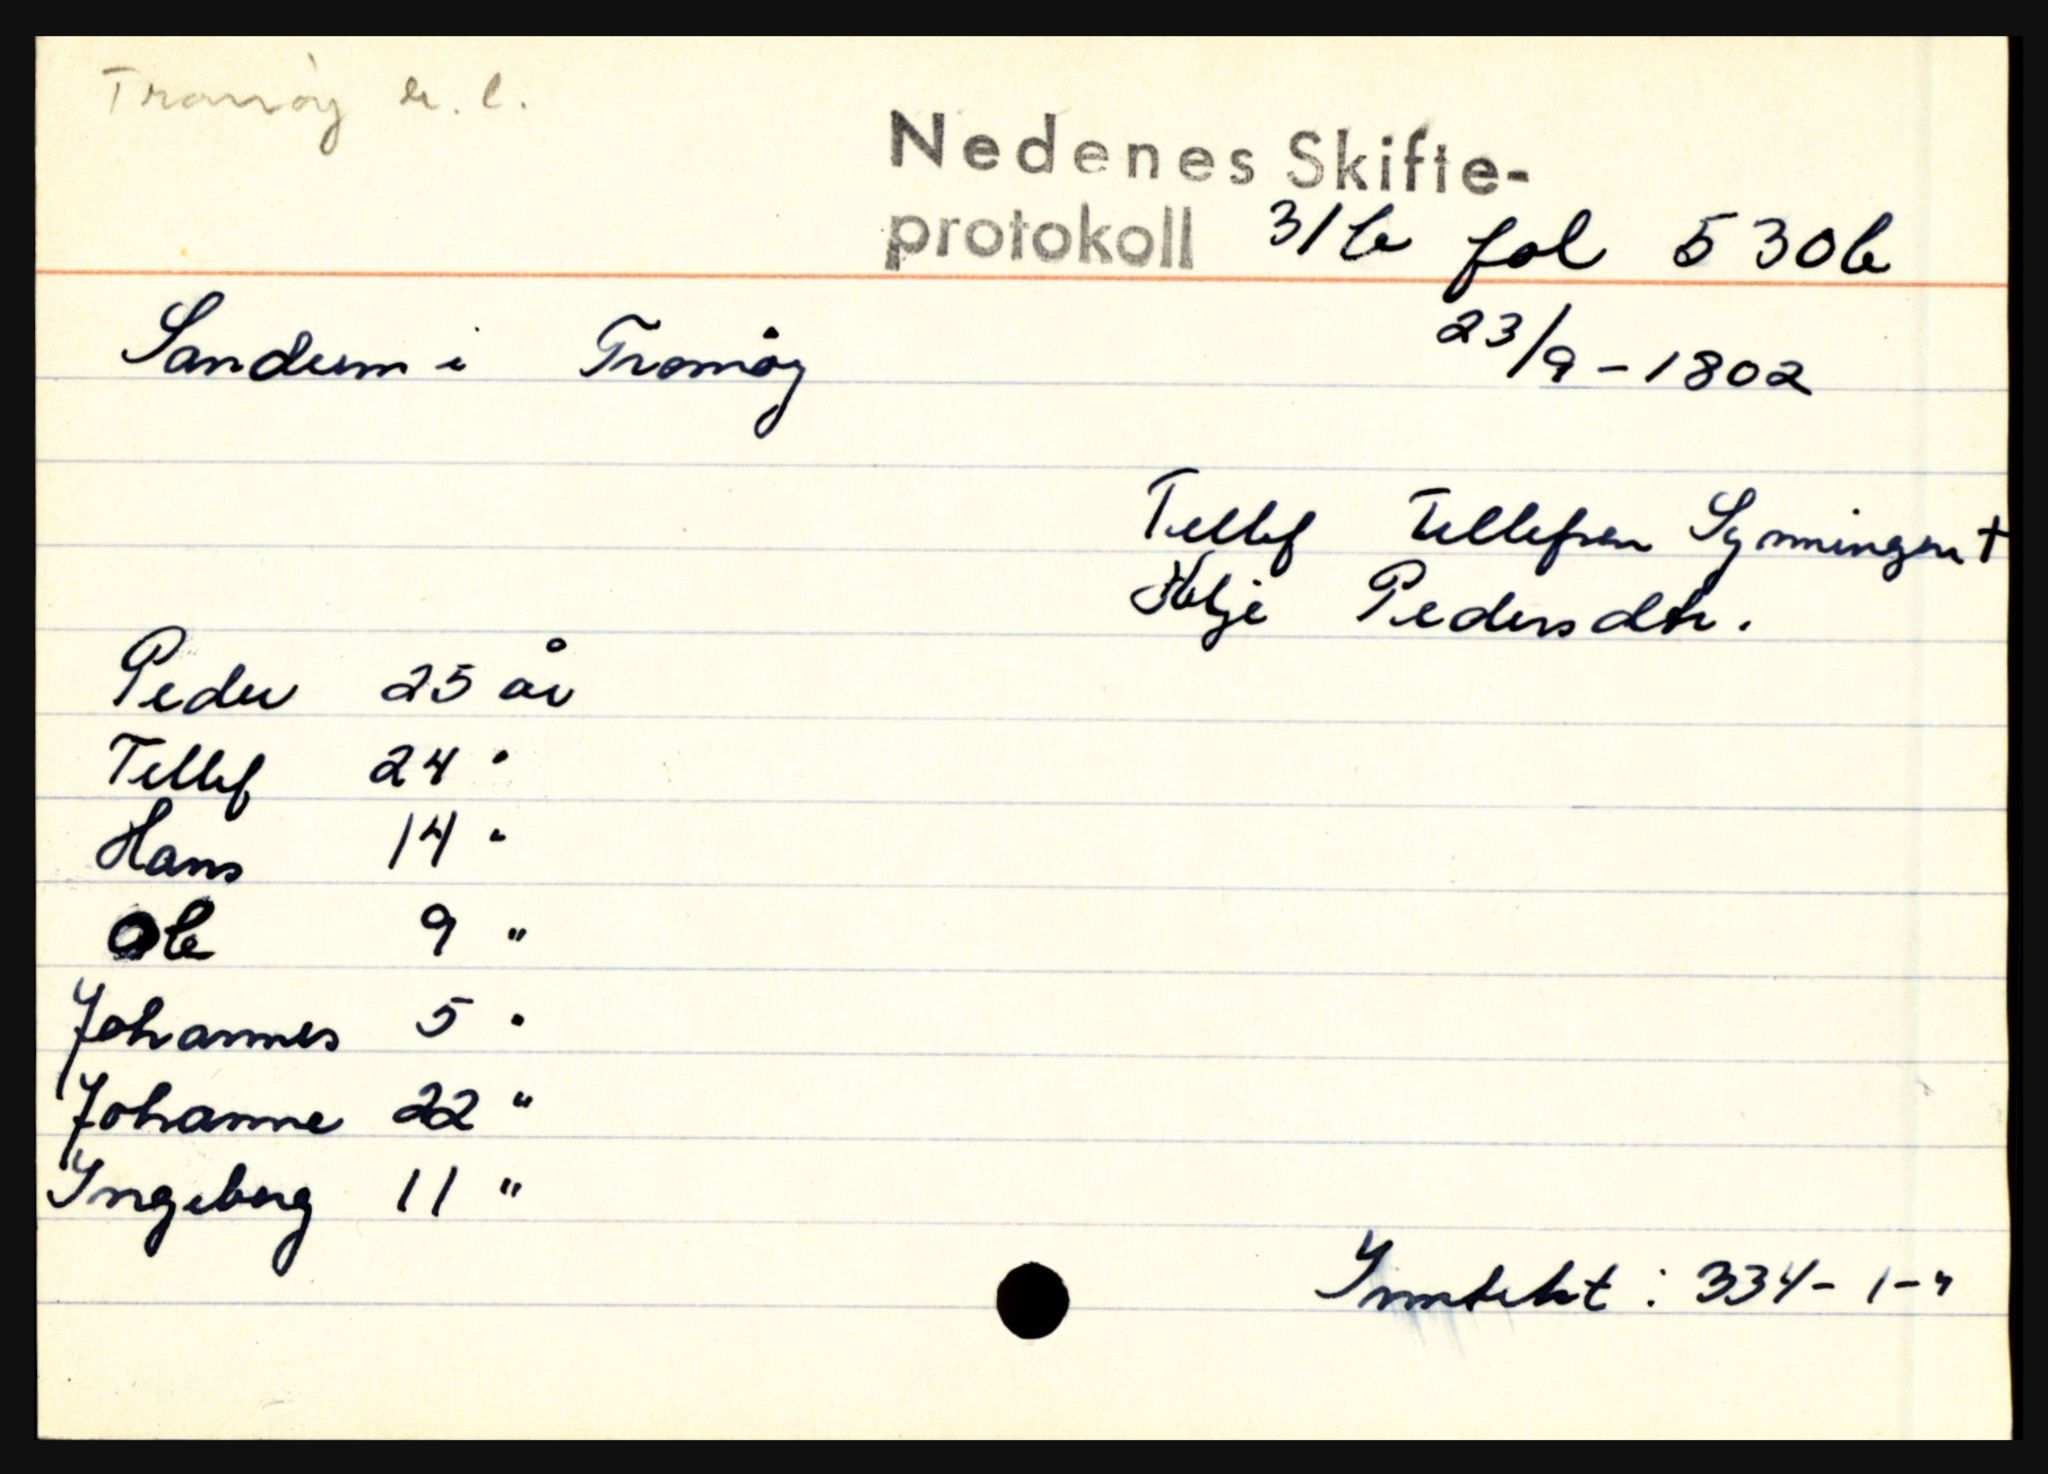 Tromöy
Nedenes Skifte-
protokoll 31b fol 530b
Sandum i Tromöy 23/9-1802
Tellef Tellefsen Synningen +
Helje Pedersdtr.
Peder 25 år
Tellef 24 "
Hans 14 "
Ole 9 "
Johannes 5 "
Johanne 22 "
Ingeborg 11 "
Inntekt: 334-1-4